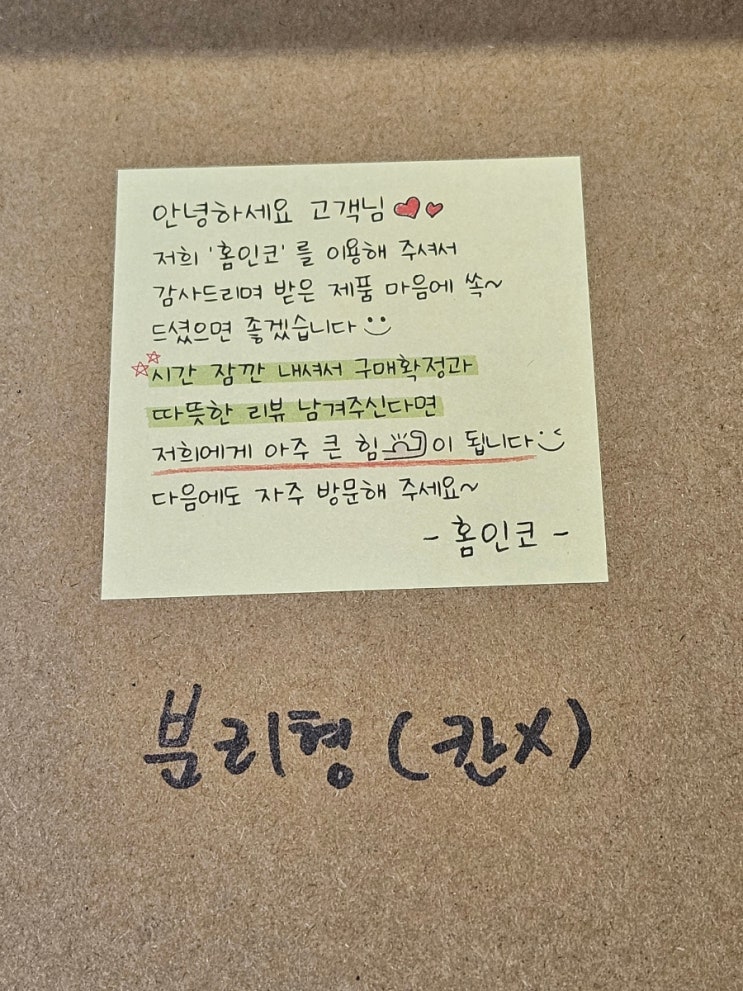 안녕하세요 고객님
저희 '홈인코' 를 이용해 주셔서
감사드리며 받은 제품 마음에 쏙~
드셨으면 좋겠습니다
시간 잠깐 내셔서 구매확정과
따뜻한 리뷰 남겨주신다면
저희에게 아주 큰 힘이 됩니다
다음에도 자주 방문해 주세요~
- 홈인코 -
분리형 (칸X)